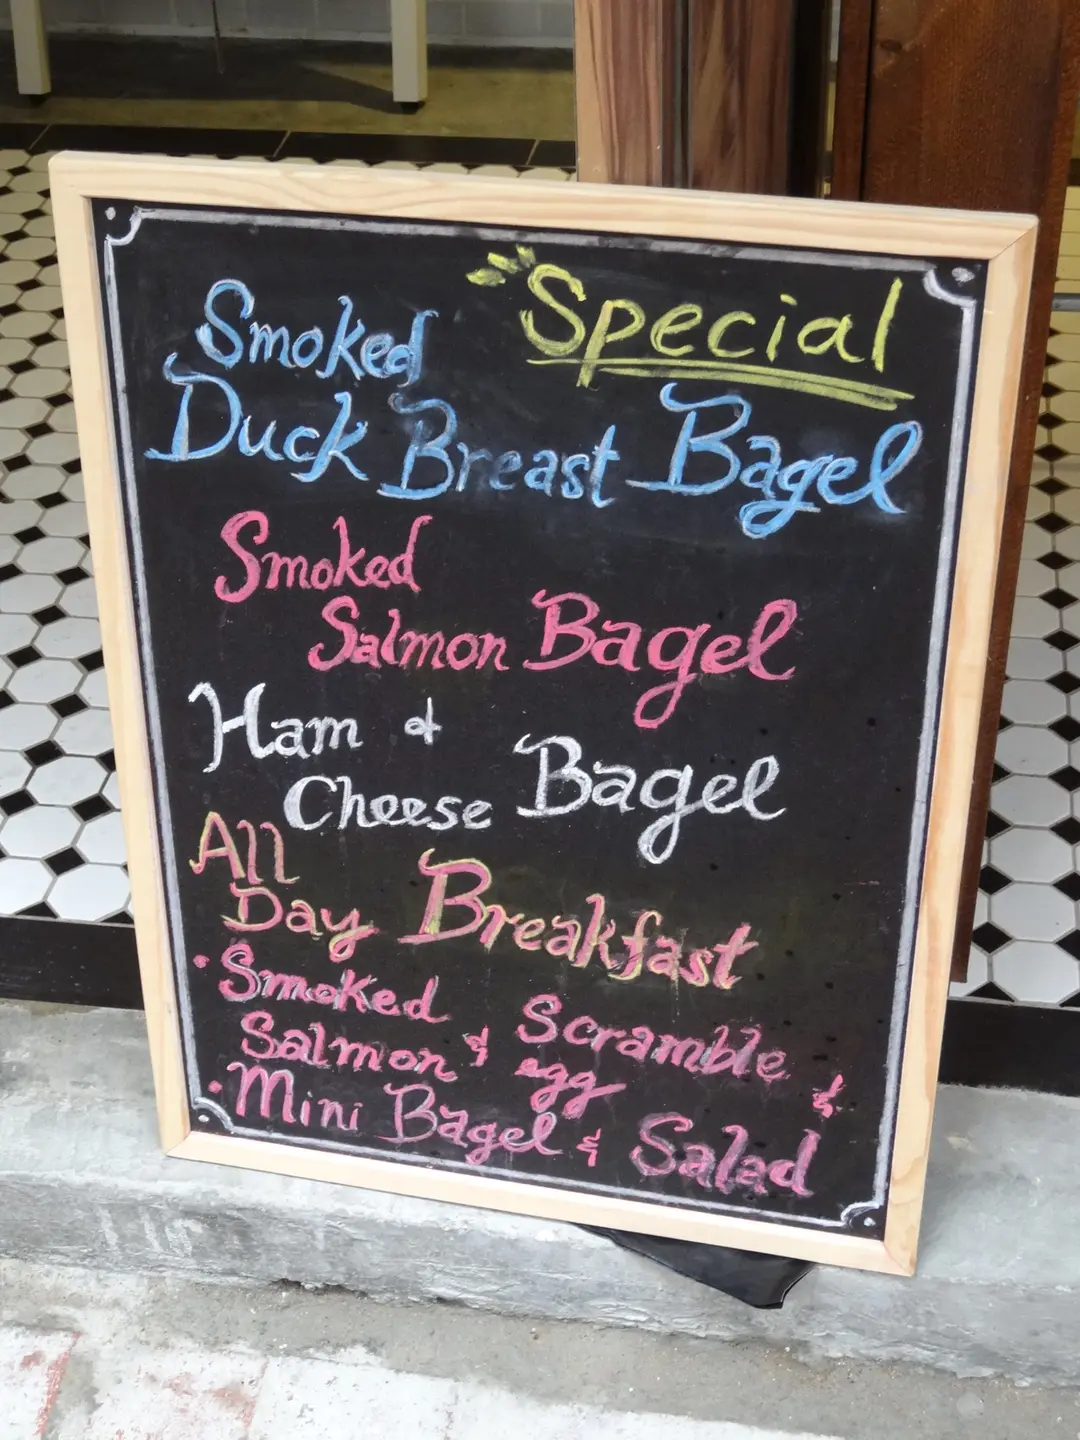 Special
Smoked
Duck Breast Bagel
Smoked
Salmon Bagel
Ham &
Cheese Bagel
All
Day Breakfast
• Smoked Scramble &
Salmon & egg
• Mini Bagel & Salad